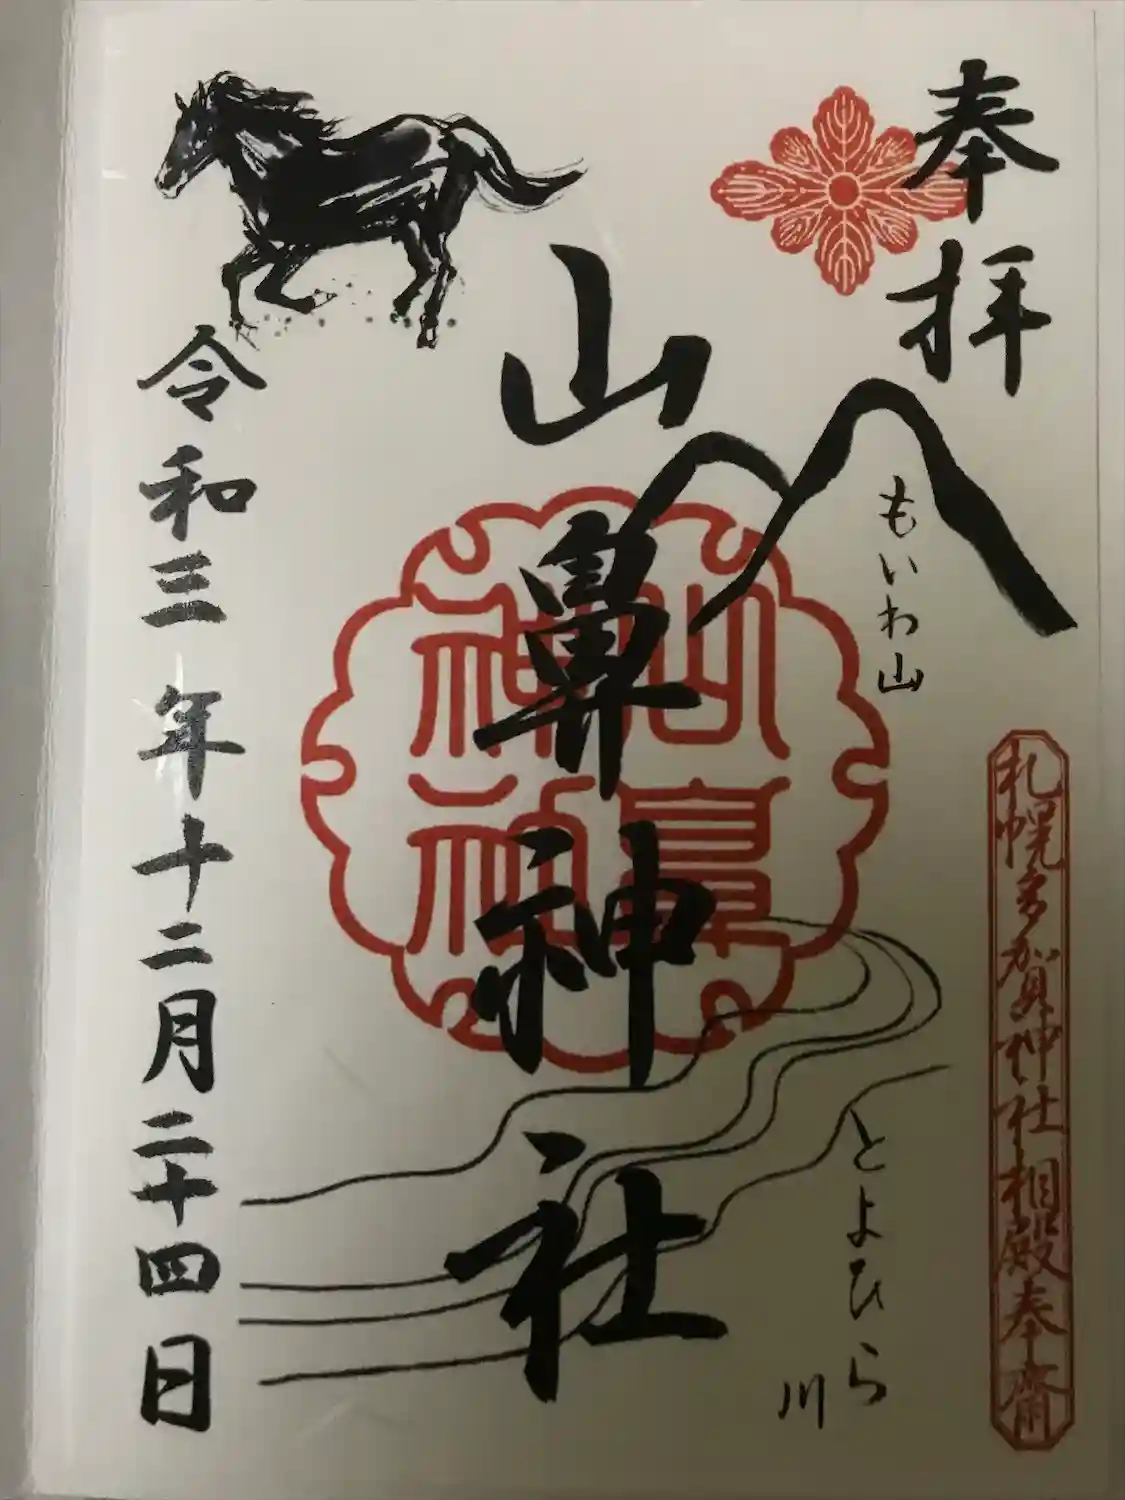 奉拝
もいわ山
札幌多賀神社相殿奉齋
山鼻神社
山鼻神社
とよひら川
令和三年十二月二十四日